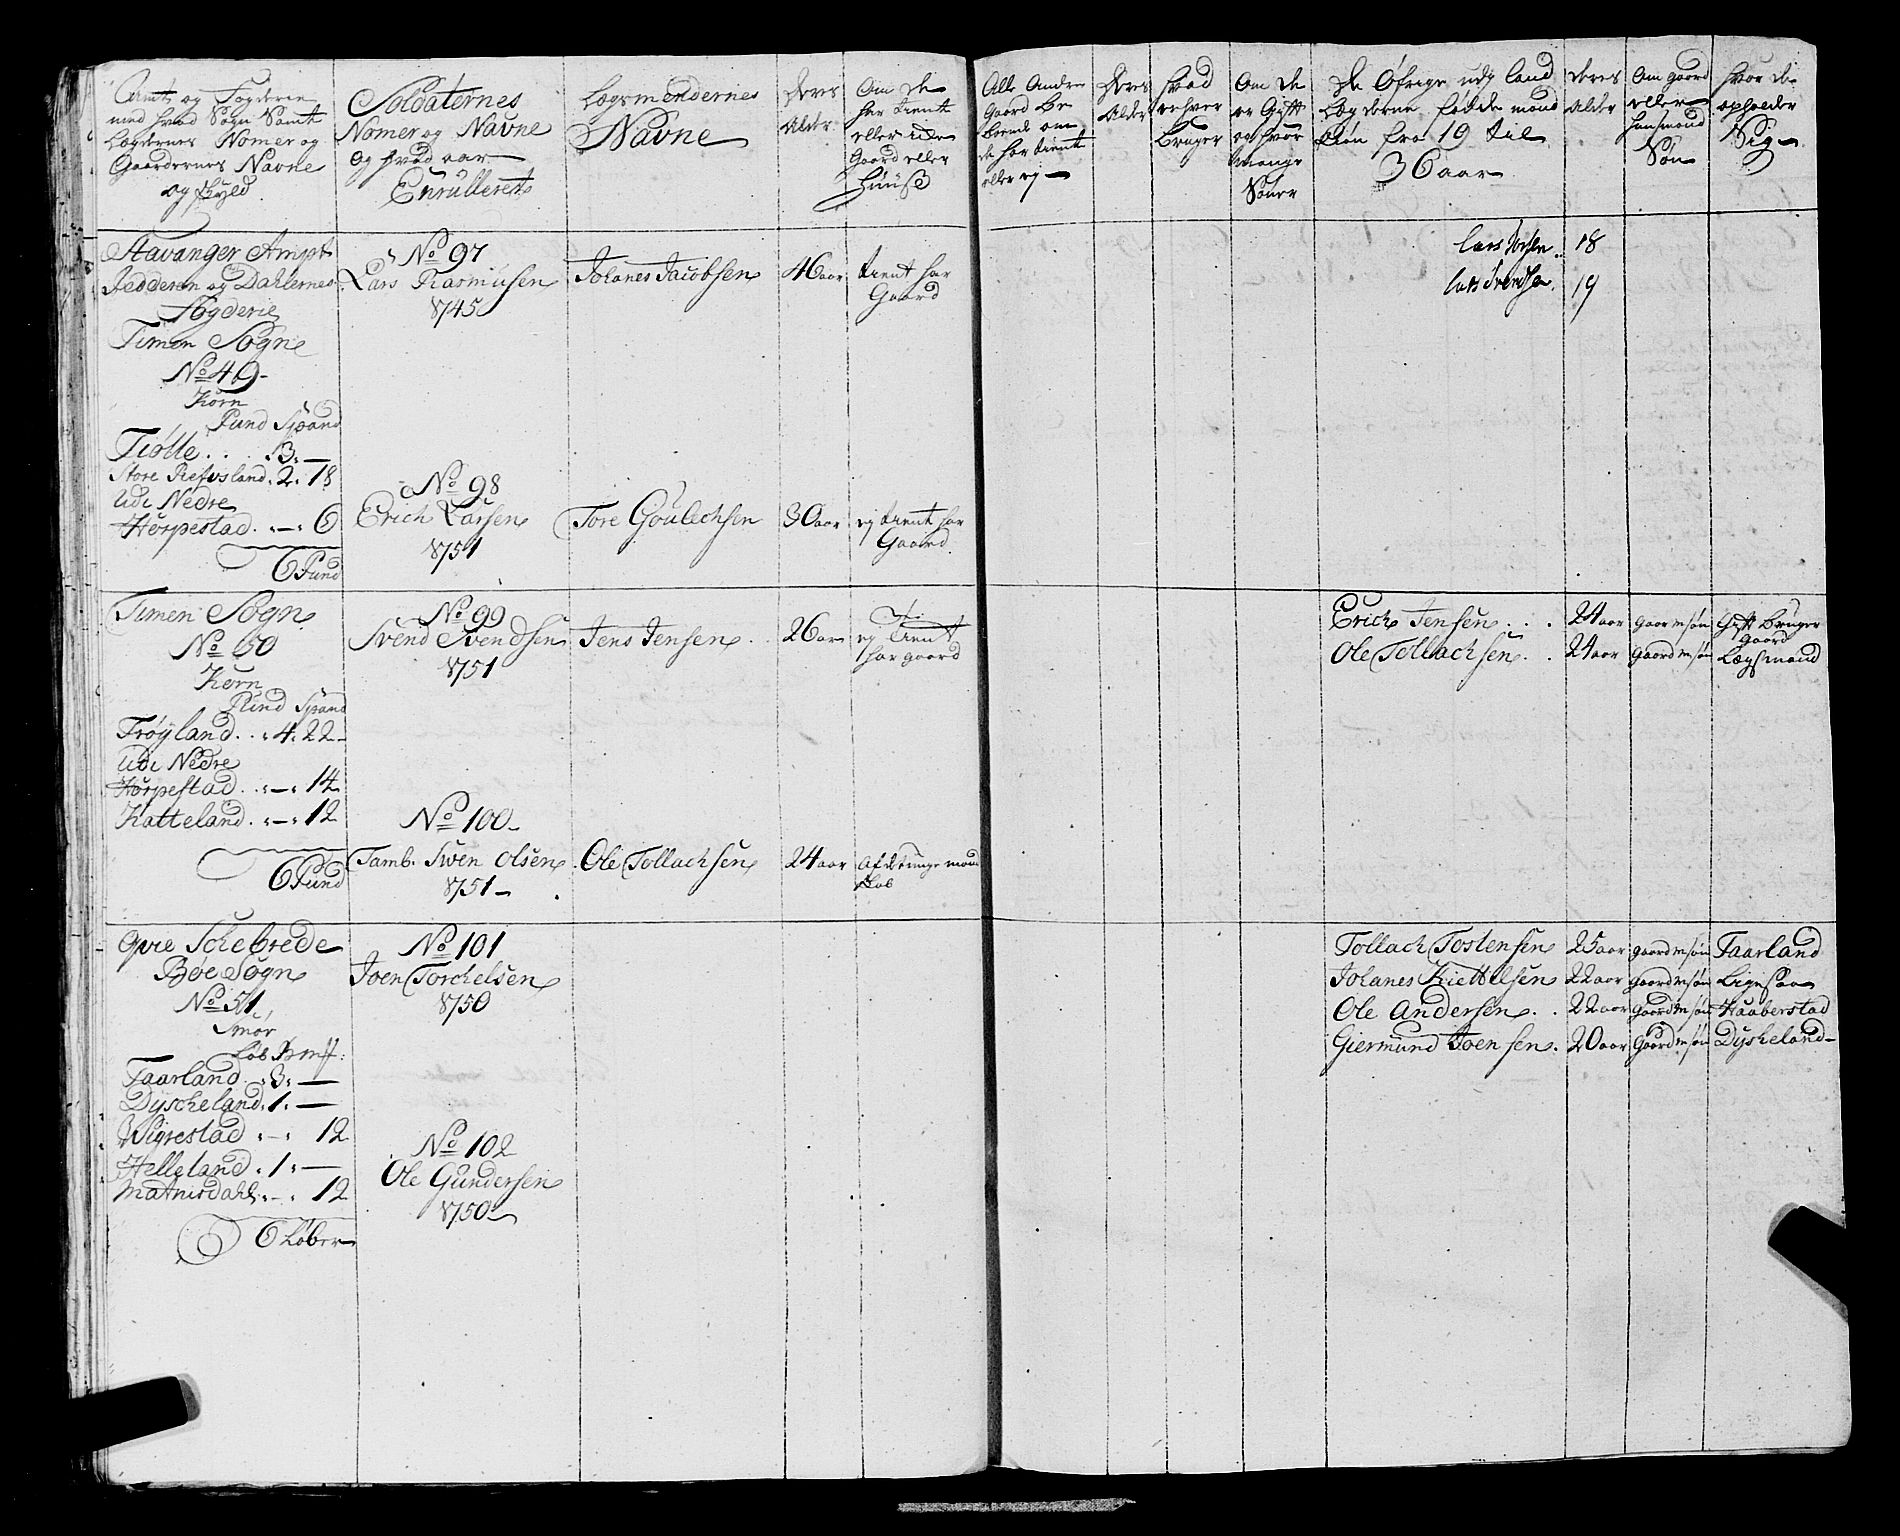 Ampt og Fogderie
med hvad Sogn Samt
Lægdernes Nomer og
Gaardernes Navne
og Skyld
Soldaternes
Nomer og Navne
og hvad aar
Enrulleret
Lægsmendernes
Navne
Deres
Alder
Om de
har tient
eller
Gaard eller
Huuse
Alle Andre
Gaard be
boende om
de har tient
eller ej
Deres
Alder
hvad
enhver
bruger
Om de
er Gift
og hvor
mange
Sønner
De Øfrige udj land
Lægderne fødde mand
kiøn fra 19 til
36 aar
Deres
Alder
Om gaard
eller
huusmand
Søn
hvor de
opholder
Sig
Stavanger Ampt
Jedderen og Dahlernes
Fogderie
Timen Sogn
No 49
Korn
Pund Spand
Tiøtte . . 3. —
Store Refvsland . 2. 18
Udi Nedre
Hørpestad . — . 6
6 Pund
No 97
Lars Rasmusen
1745
Johanes Jacobsen
46 aar
tient har
Gaard
18
Lars Svendsen. 19
No 98
Erich Larsen
1751
Tore Goulechsen
30 aar
ej tient har
Gaard
Timen Sogn
No 50
Korn
Pund Spand
Frøyland . . 4. 22
Udi Nedre
Hørpestad . . — . 14
Katteland . — . 12
6 Pund
No 99
Svend Svendsen
1751
Jens Jensen
26 aar
ej tient
har gaard
Erich Jensen . . . 24 aar gaard m søn Gift bruger
Gaard
Ole Tollachsen . . 24 aar gaard m søn Lægsmand
No 100
Tamb. Swen Olsen
1751
Ole Tollachsen
24 aar
Af de unge mand
skab
Qvie Schebrede
Bøe Sogn
No 51
Smør
Løb
Taarland . 3. —
Dyscheland . 1. —
Wigrestad . — . 12
Helleland . 1. —
Matnisdahl . — . 12
6 Løber
No 101
Joen Torchelsen
1750
Tollach Tostensen 25 aar gaard m søn Taarland
Johanes Kiettelsen 22 aar gaard m søn Ligesaa
Ole Andersen . . 22 aar gaard m søn Haaberstad
Giermund Joensen . 20 aar gaard m søn Dyskeland
No 102
Ole Gundersen
1750